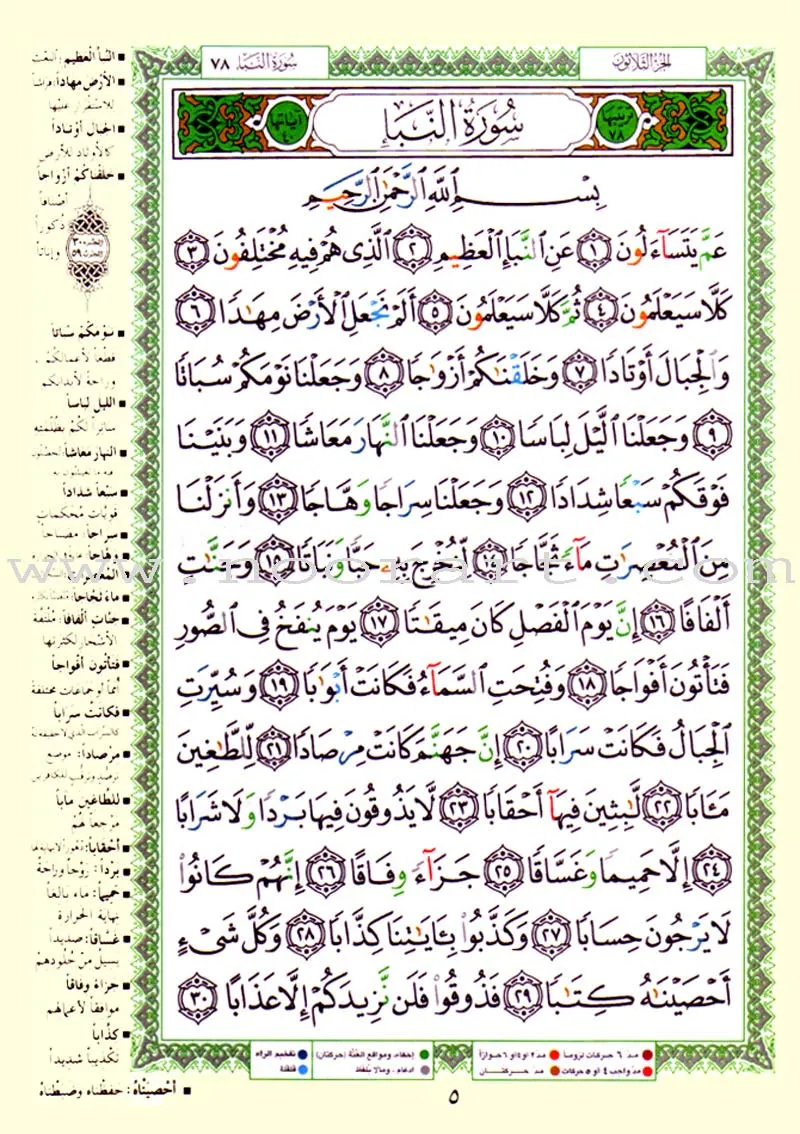 الجزء الثلاثون
سورة النبإ ٧٨
ترتيبها ٧٨
سُورَةُ النَّبَإِ
آياتها ٤٠
بِسْمِ ٱللَّهِ ٱلرَّحْمَٰنِ ٱلرَّحِيمِ
عَمَّ يَتَسَآءَلُونَ ١ عَنِ ٱلنَّبَإِ ٱلْعَظِيمِ ٢ ٱلَّذِى هُمْ فِيهِ مُخْتَلِفُونَ ٣
كَلَّا سَيَعْلَمُونَ ٤ ثُمَّ كَلَّا سَيَعْلَمُونَ ٥ أَلَمْ نَجْعَلِ ٱلْأَرْضَ مِهَٰدًا ٦
وَٱلْجِبَالَ أَوْتَادًا ٧ وَخَلَقْنَٰكُمْ أَزْوَٰجًا ٨ وَجَعَلْنَا نَوْمَكُمْ سُبَاتًا
٩ وَجَعَلْنَا ٱلَّيْلَ لِبَاسًا ١٠ وَجَعَلْنَا ٱلنَّهَارَ مَعَاشًا ١١ وَبَنَيْنَا
فَوْقَكُمْ سَبْعًا شِدَادًا ١٢ وَجَعَلْنَا سِرَاجًا وَهَّاجًا ١٣ وَأَنزَلْنَا
مِنَ ٱلْمُعْصِرَٰتِ مَآءً ثَجَّاجًا ١٤ لِّنُخْرِجَ بِهِۦ حَبًّا وَنَبَاتًا ١٥ وَجَنَّٰتٍ
أَلْفَافًا ١٦ إِنَّ يَوْمَ ٱلْفَصْلِ كَانَ مِيقَٰتًا ١٧ يَوْمَ يُنفَخُ فِى ٱلصُّورِ
فَتَأْتُونَ أَفْوَاجًا ١٨ وَفُتِحَتِ ٱلسَّمَآءُ فَكَانَتْ أَبْوَٰبًا ١٩ وَسُيِّرَتِ
ٱلْجِبَالُ فَكَانَتْ سَرَابًا ٢٠ إِنَّ جَهَنَّمَ كَانَتْ مِرْصَادًا ٢١ لِّلطَّٰغِينَ
مَـَٔابًا ٢٢ لَّٰبِثِينَ فِيهَآ أَحْقَابًا ٢٣ لَّا يَذُوقُونَ فِيهَا بَرْدًا وَلَا شَرَابًا
٢٤ إِلَّا حَمِيمًا وَغَسَّاقًا ٢٥ جَزَآءً وِفَاقًا ٢٦ إِنَّهُمْ كَانُوا۟
لَا يَرْجُونَ حِسَابًا ٢٧ وَكَذَّبُوا۟ بِـَٔايَٰتِنَا كِذَّابًا ٢٨ وَكُلَّ شَىْءٍ
أَحْصَيْنَٰهُ كِتَٰبًا ٢٩ فَذُوقُوا۟ فَلَن نَّزِيدَكُمْ إِلَّا عَذَابًا ٣٠
www.noorart.com
النبأ العظيم
الأرض مهاداً
للاستقرار عليها
الجبال أوتاداً
كالأوتاد للأرض
خلقناكم أزواجاً
أصنافاً
ذكوراً
وإناثاً
الحزب ٥٩
نومكم سباتاً
قطعاً لأعمالكم
وراحة لأبدانكم
الليل لباساً
ساتراً لكم بظلمته
النهار معاشاً
سبعاً شداداً
قويات محكمات
سراجاً: مصباحاً
وهاجاً
ماء ثجاجاً
جنات ألفافاً: ملتفة
الأشجار لكثرتها
فتأتون أفواجاً
أمماً أو جماعات مختلفة
فكانت سراباً
مرصاداً: موضع
للطاغين مآباً
مرجعاً لهم
أحقاباً
برداً: روحاً وراحة
حميماً: ماء بالغاً
نهاية الحرارة
غساقاً: صديداً
يسيل من جلودهم
جزاءً وفاقاً
موافقاً لأعمالهم
كذاباً
تكذيباً شديداً
أحصيناه: حفظناه وضبطناه
مد ٦ حركات لزوماً
مد ٢ أو ٤ أو ٦ جوازاً
إخفاء، ومواقع الغنّة (حركتان)
تفخيم الراء
مد واجب ٤ أو ٥ حركات
مد حركتان
إدغام، وما لا يُلفظ
قلقلة
٥